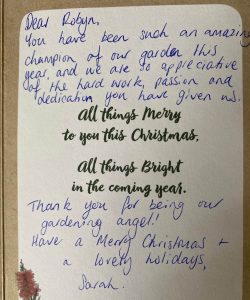 Dear Robyn,
You have been such an amazing
champion of our garden this
year, and we are so appreciative
of the hard work, passion and
dedication you have given us.
All things Merry
to you this Christmas,
All things Bright
in the coming year.
Thank you for being our
gardening angel!
Have a Merry Christmas +
a lovely holidays,
Sarah.